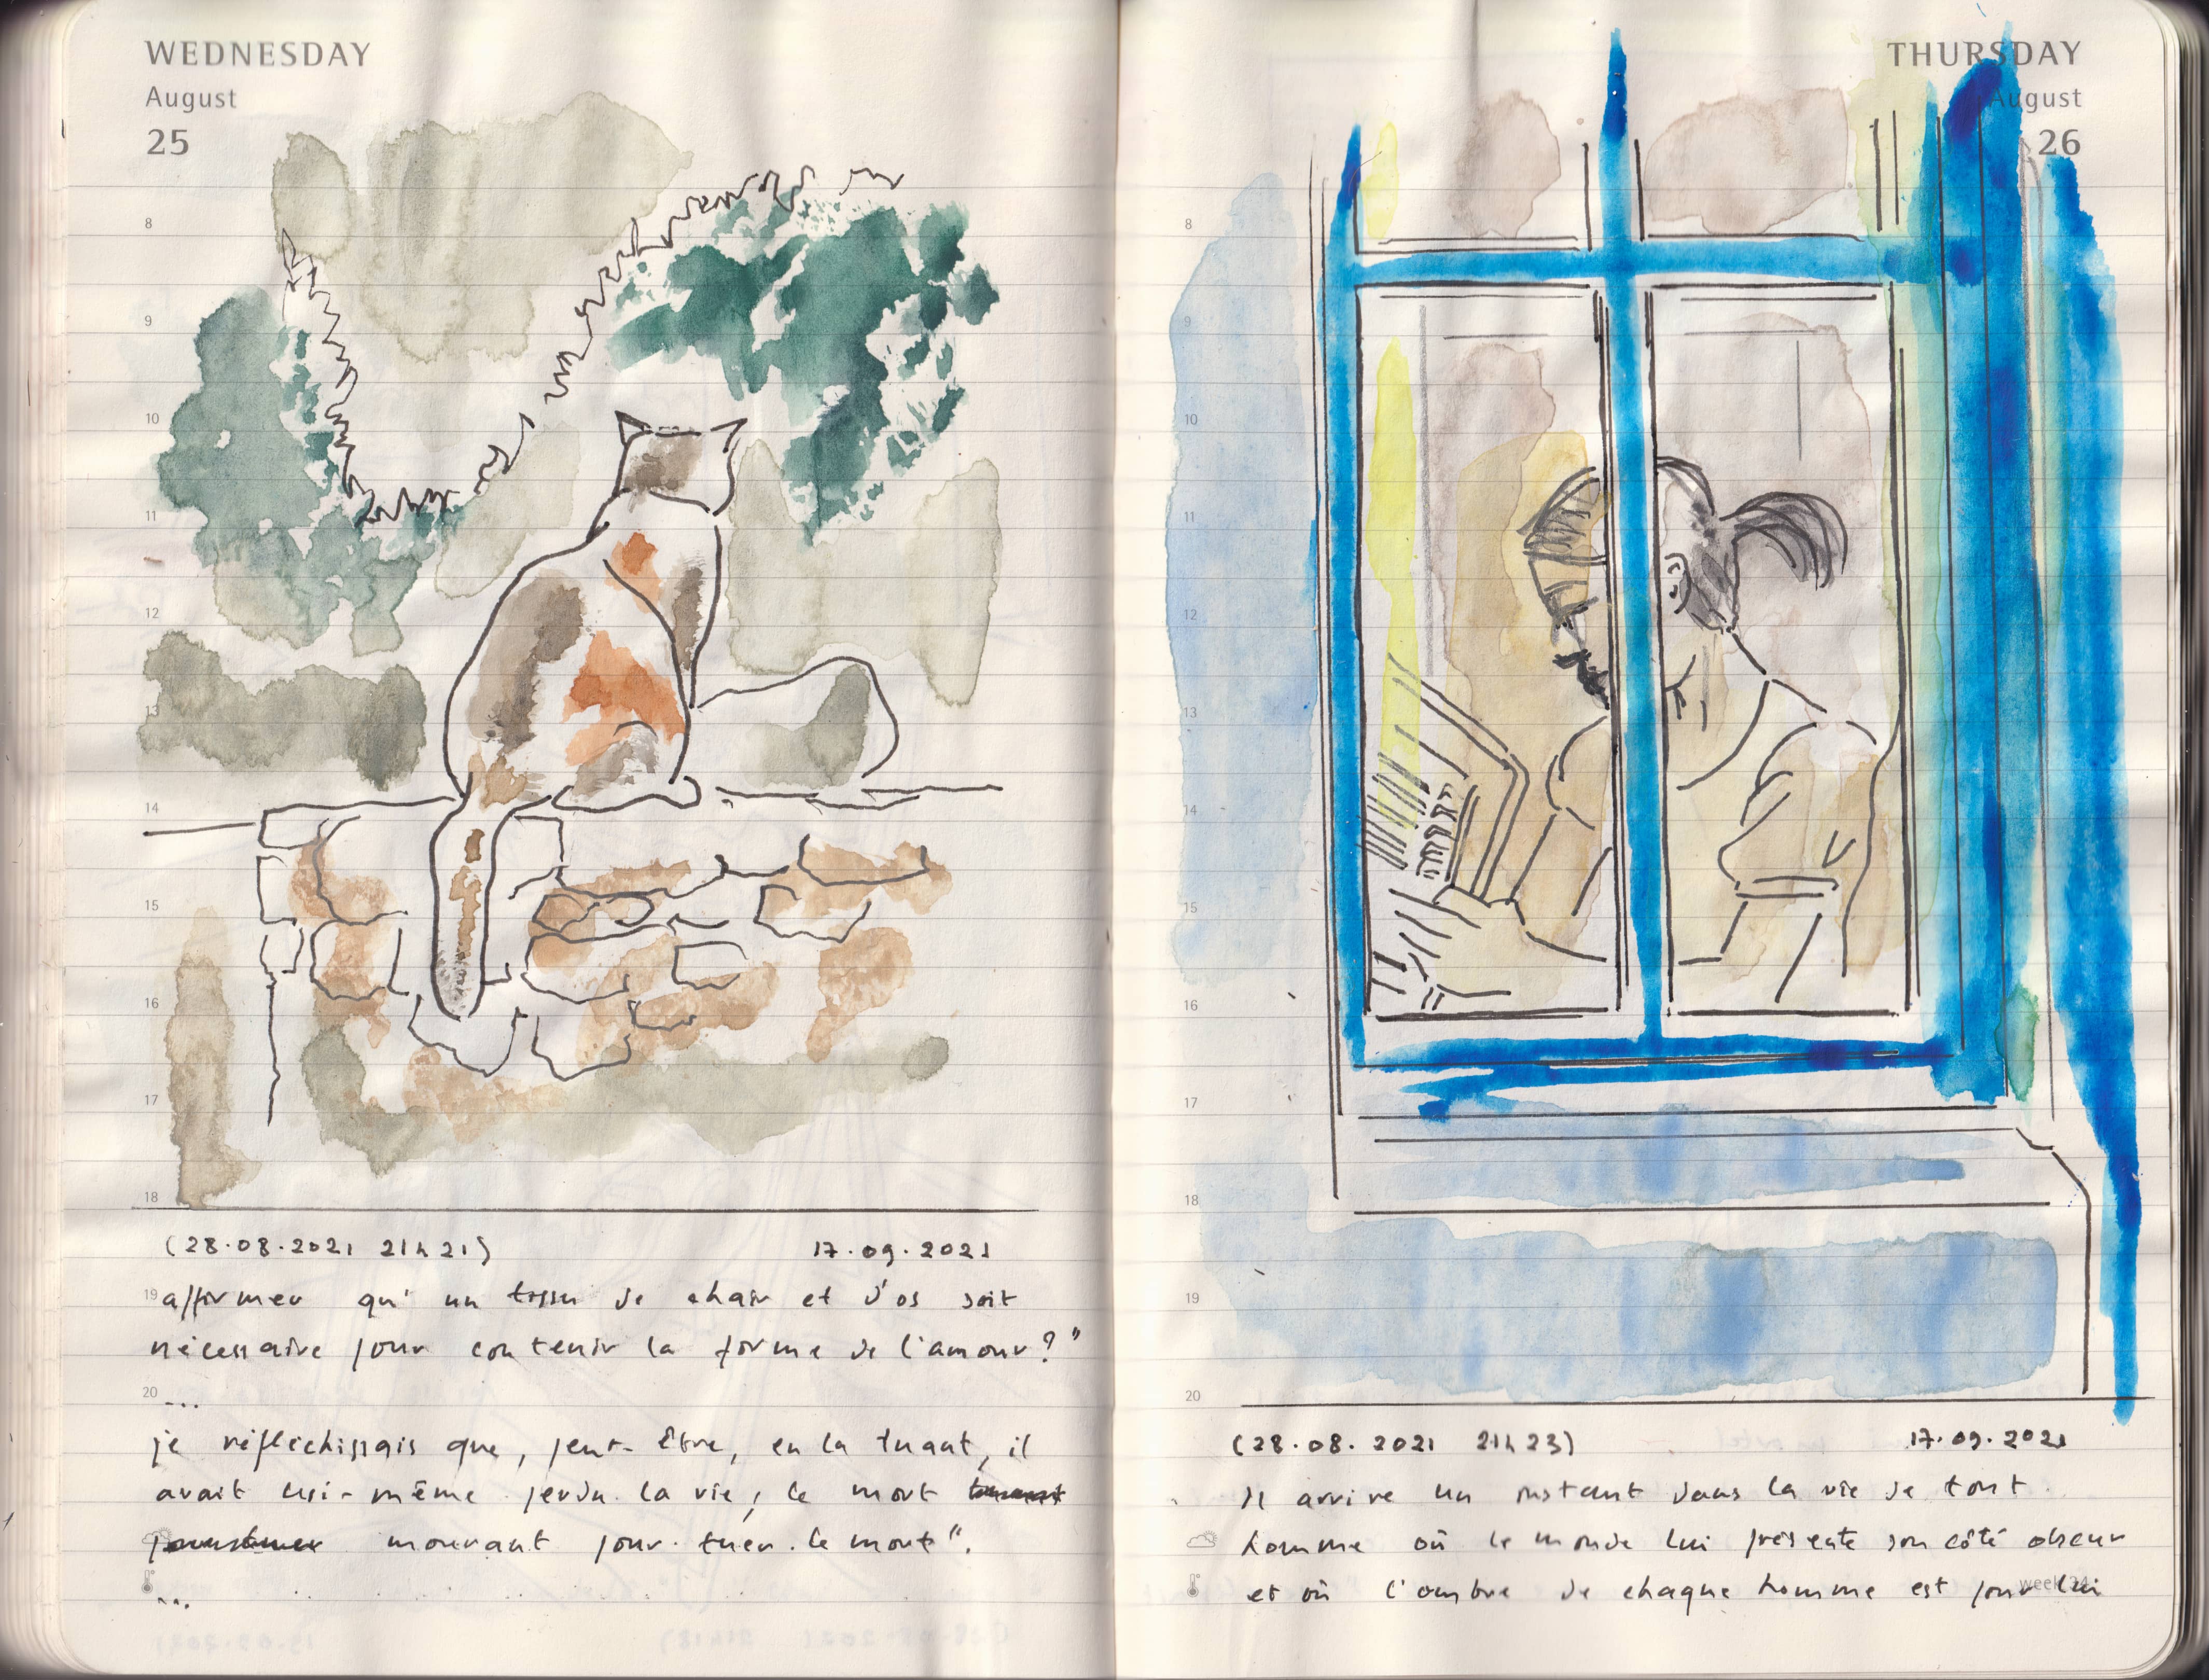 WEDNESDAY
August
25
8
9
10
11
12
13
14
15
16
17
18
(28.08.2021 21h21) 17.09.2021
19 affirmer qu'un tissu de chair et d'os soit
nécessaire pour contenir la forme de l'amour?"
20
...
je réfléchissais que, peut-être, en la tuant, il
avait lui-même perdu la vie, le mort
mourant pour tuer le mort".
...
THURSDAY
August
26
8
9
10
11
12
13
14
15
16
17
18
19
20
(28.08.2021 21h23) 17.09.2021
Il arrive un instant dans la vie de tout
homme où le monde lui présente son côté obscur
et où l'ombre de chaque homme est pour lui
week 34